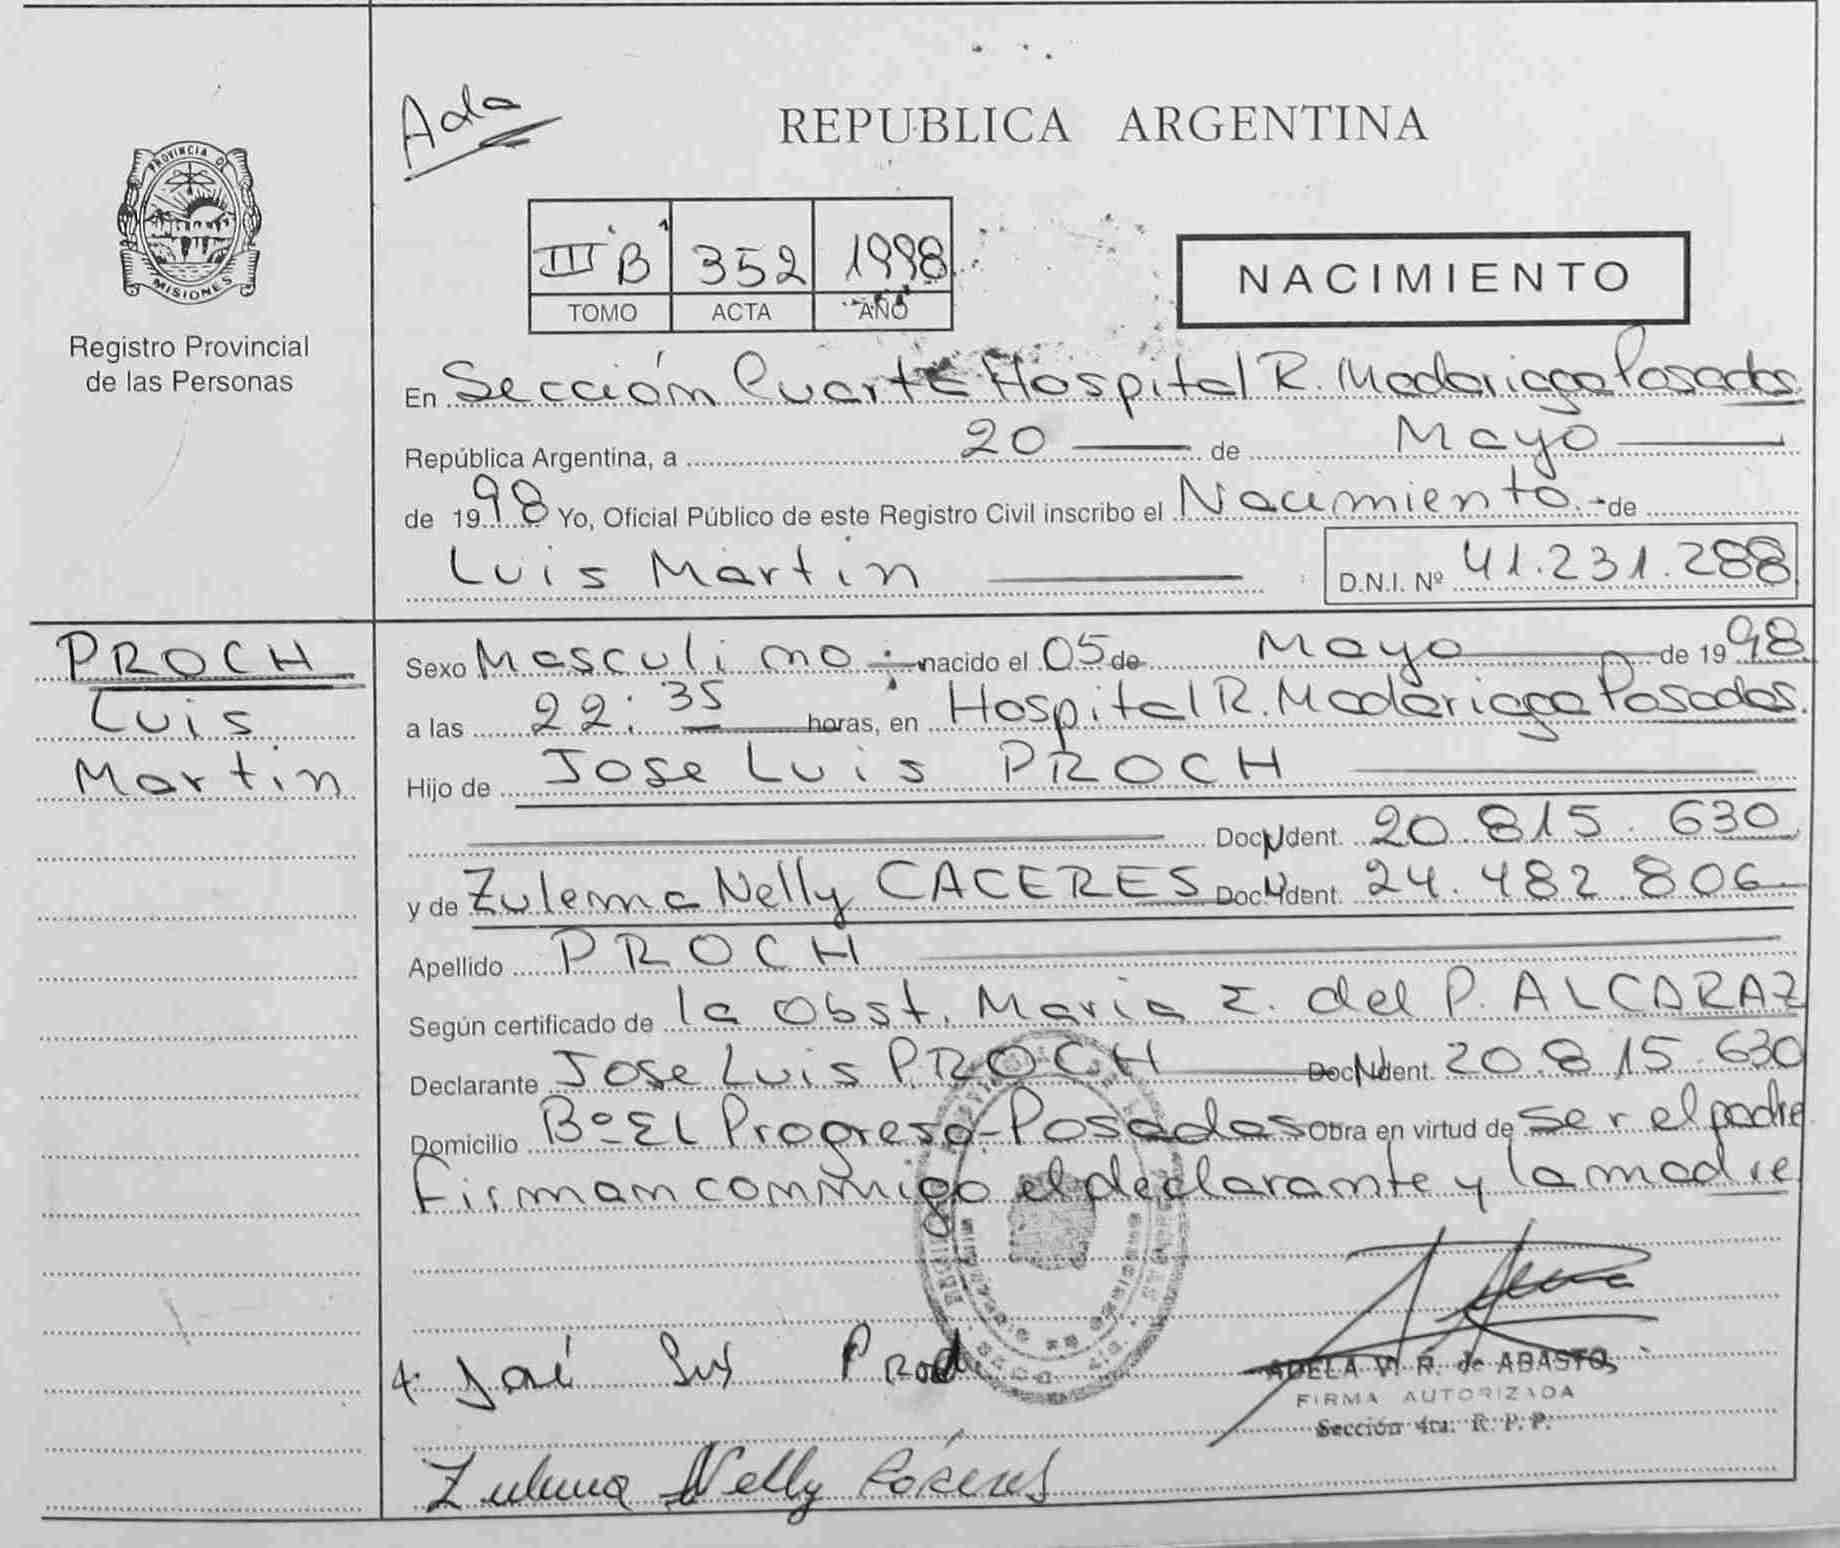 Ada
REPUBLICA ARGENTINA
PROVINCIA D
MISIONES
Registro Provincial
de las Personas
III "B" 352 1998
TOMO ACTA AÑO
NACIMIENTO
En Sección Cuarta Hospital R. Madariaga Posadas
República Argentina, a 20 de Mayo
de 1998 Yo, Oficial Público de este Registro Civil inscribo el Nacimiento.- de
Luis Martin D.N.I. Nº 41.231.288
PROCH
Luis
Martin
Sexo Masculino.- nacido el 05 de Mayo de 1998
a las 22:35 horas, en Hospital R. Madariaga Posadas.
Hijo de Jose Luis PROCH
Doc. Ident. 20.815.630
y de Zulema Nelly CACERES Doc. Ident. 24.482.806
Apellido PROCH
Según certificado de la Obst. Maria E. del P. ALCARAZ
Declarante Jose Luis PROCH Doc. Ident. 20.815.630
Domicilio Bº EL Progreso-Posadas Obra en virtud de ser el padre
Firman conmigo el declarante y la madre
José Luis Proch
ADELA V. R. de ABASTO
FIRMA AUTORIZADA
Sección 4ta. R. P. P.
Zulema Nelly Cáceres